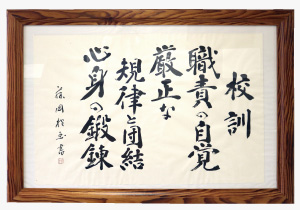 校訓
職責の自覚
厳正な
規律と団結
心身の鍛錬